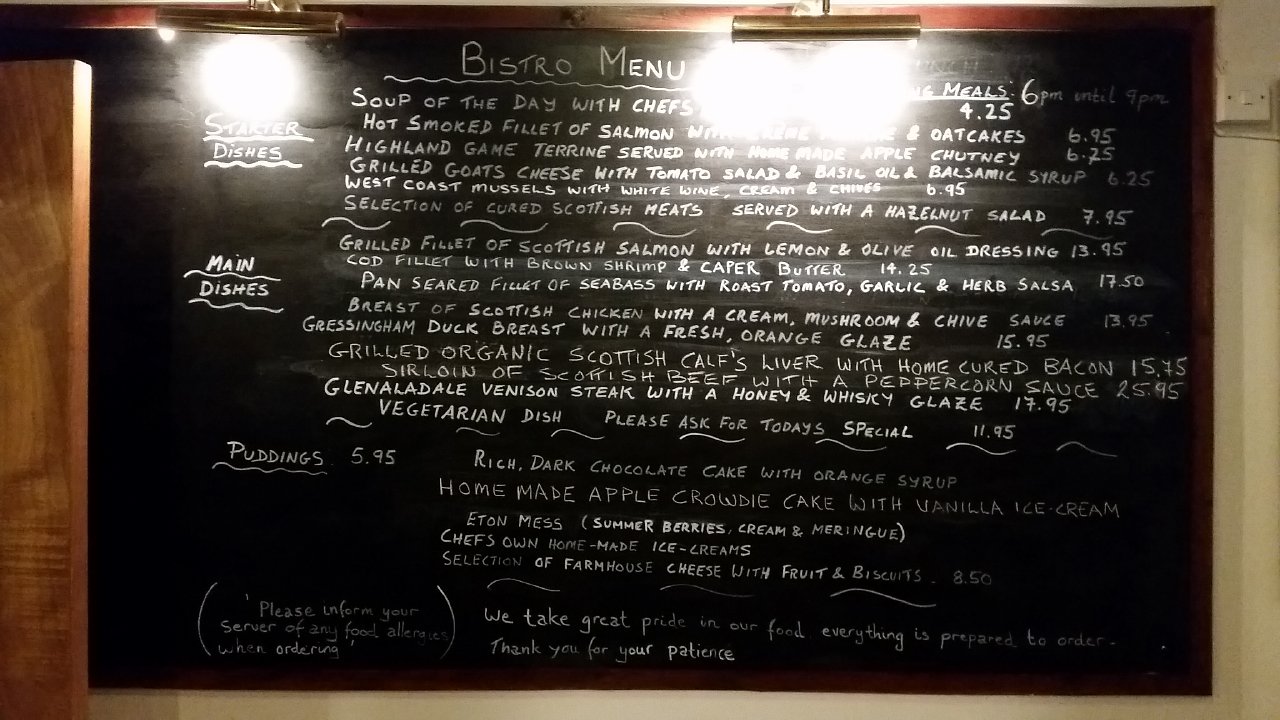 BISTRO MENU
MEALS: 6pm until 9pm
SOUP OF THE DAY WITH CHEFS 4.25
STARTER DISHES
HOT SMOKED FILLET OF SALMON WITH & OATCAKES 6.95
HIGHLAND GAME TERRINE SERVED WITH HOME MADE APPLE CHUTNEY 6.75
GRILLED GOATS CHEESE WITH TOMATO SALAD & BASIL OIL & BALSAMIC SYRUP 6.25
WEST COAST MUSSELS WITH WHITE WINE, CREAM & CHIVES 6.95
SELECTION OF CURED SCOTTISH MEATS SERVED WITH A HAZELNUT SALAD 7.95
MAIN DISHES
GRILLED FILLET OF SCOTTISH SALMON WITH LEMON & OLIVE OIL DRESSING 13.95
COD FILLET WITH BROWN SHRIMP & CAPER BUTTER 14.25
PAN SEARED FILLET OF SEABASS WITH ROAST TOMATO, GARLIC & HERB SALSA 17.50
BREAST OF SCOTTISH CHICKEN WITH A CREAM, MUSHROOM & CHIVE SAUCE 13.95
GRESSINGHAM DUCK BREAST WITH A FRESH, ORANGE GLAZE 15.95
GRILLED ORGANIC SCOTTISH CALF'S LIVER WITH HOME CURED BACON 15.75
SIRLOIN OF SCOTTISH BEEF WITH A PEPPERCORN SAUCE 25.95
GLENALADALE VENISON STEAK WITH A HONEY & WHISKY GLAZE 17.95
VEGETARIAN DISH PLEASE ASK FOR TODAYS SPECIAL 11.95
PUDDINGS 5.95
RICH, DARK CHOCOLATE CAKE WITH ORANGE SYRUP
HOME MADE APPLE CROWDIE CAKE WITH VANILLA ICE-CREAM
ETON MESS (SUMMER BERRIES, CREAM & MERINGUE)
CHEFS OWN HOME-MADE ICE-CREAMS
SELECTION OF FARMHOUSE CHEESE WITH FRUIT & BISCUITS. 8.50
('Please inform your
Server of any food allergies
when ordering')
We take great pride in our food. everything is prepared to order.
Thank you for your patience